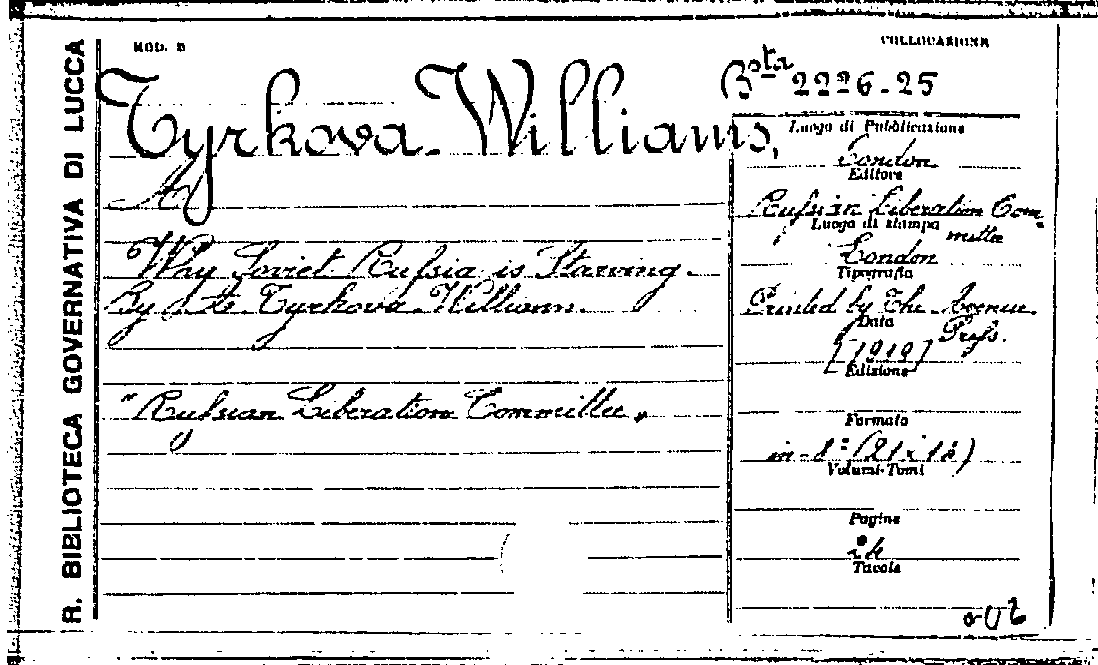 R. BIBLIOTECA GOVERNATIVA DI LUCCA
MOD. B
COLLOCAZIONE
Bsta 2226.25
Tyrkova-Williams,
A.
Why Soviet Russia is Starving.
By A. Tyrkova-Williams.
"Russian Liberation Committee"
Luogo di Pubblicazione
London
Editore
Russian Liberation Com-
mittee
Luogo di stampa
London
Tipografia
Printed by The Avenue
Press.
Data
[1919]
Edizione
Formato
in-8° (21x14)
Volumi-Tomi
Pagine
24
Tavole